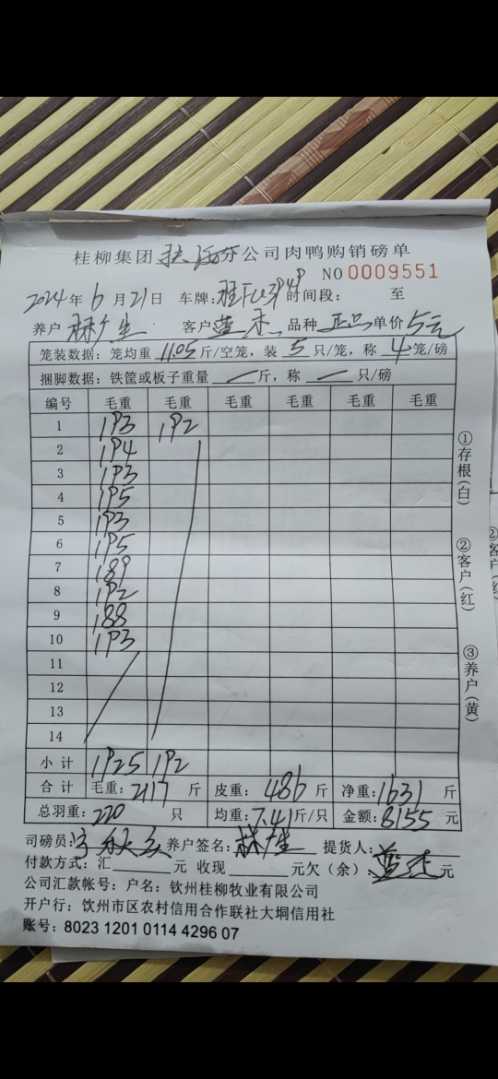 桂柳集团 分公司肉鸭购销磅单
NO 0009551
2024年6月21日 车牌: 时间段: 至
养户 林广生 客户 蓝杰 品种 正品 单价 5元
笼装数据:笼均重 11.05 斤/空笼,装 5 只/笼,称 4 笼/磅
捆脚数据:铁筐或板子重量 — 斤,称 — 只/磅
编号 毛重 毛重 毛重 毛重 毛重 毛重
1 193 192
2 194
3 193
4 195
5 193
6 195
7 189
8 192
9 188
10 193
11
12
13
14
小计 1925 192
合计 毛重:2117 斤 皮重:486 斤 净重:1631 斤
总羽重:220 只 均重:7.41 斤/只 金额:8155 元
司磅员: 养户签名:林广生 提货人:
付款方式:汇 元 收现 元欠(余): 蓝杰 元
公司汇款帐号:户名:钦州桂柳牧业有限公司
开户行:钦州市区农村信用合作联社大垌信用社
账号:8023 1201 0114 4296 07
①存根(白)
②客户(红)
③养户(黄)